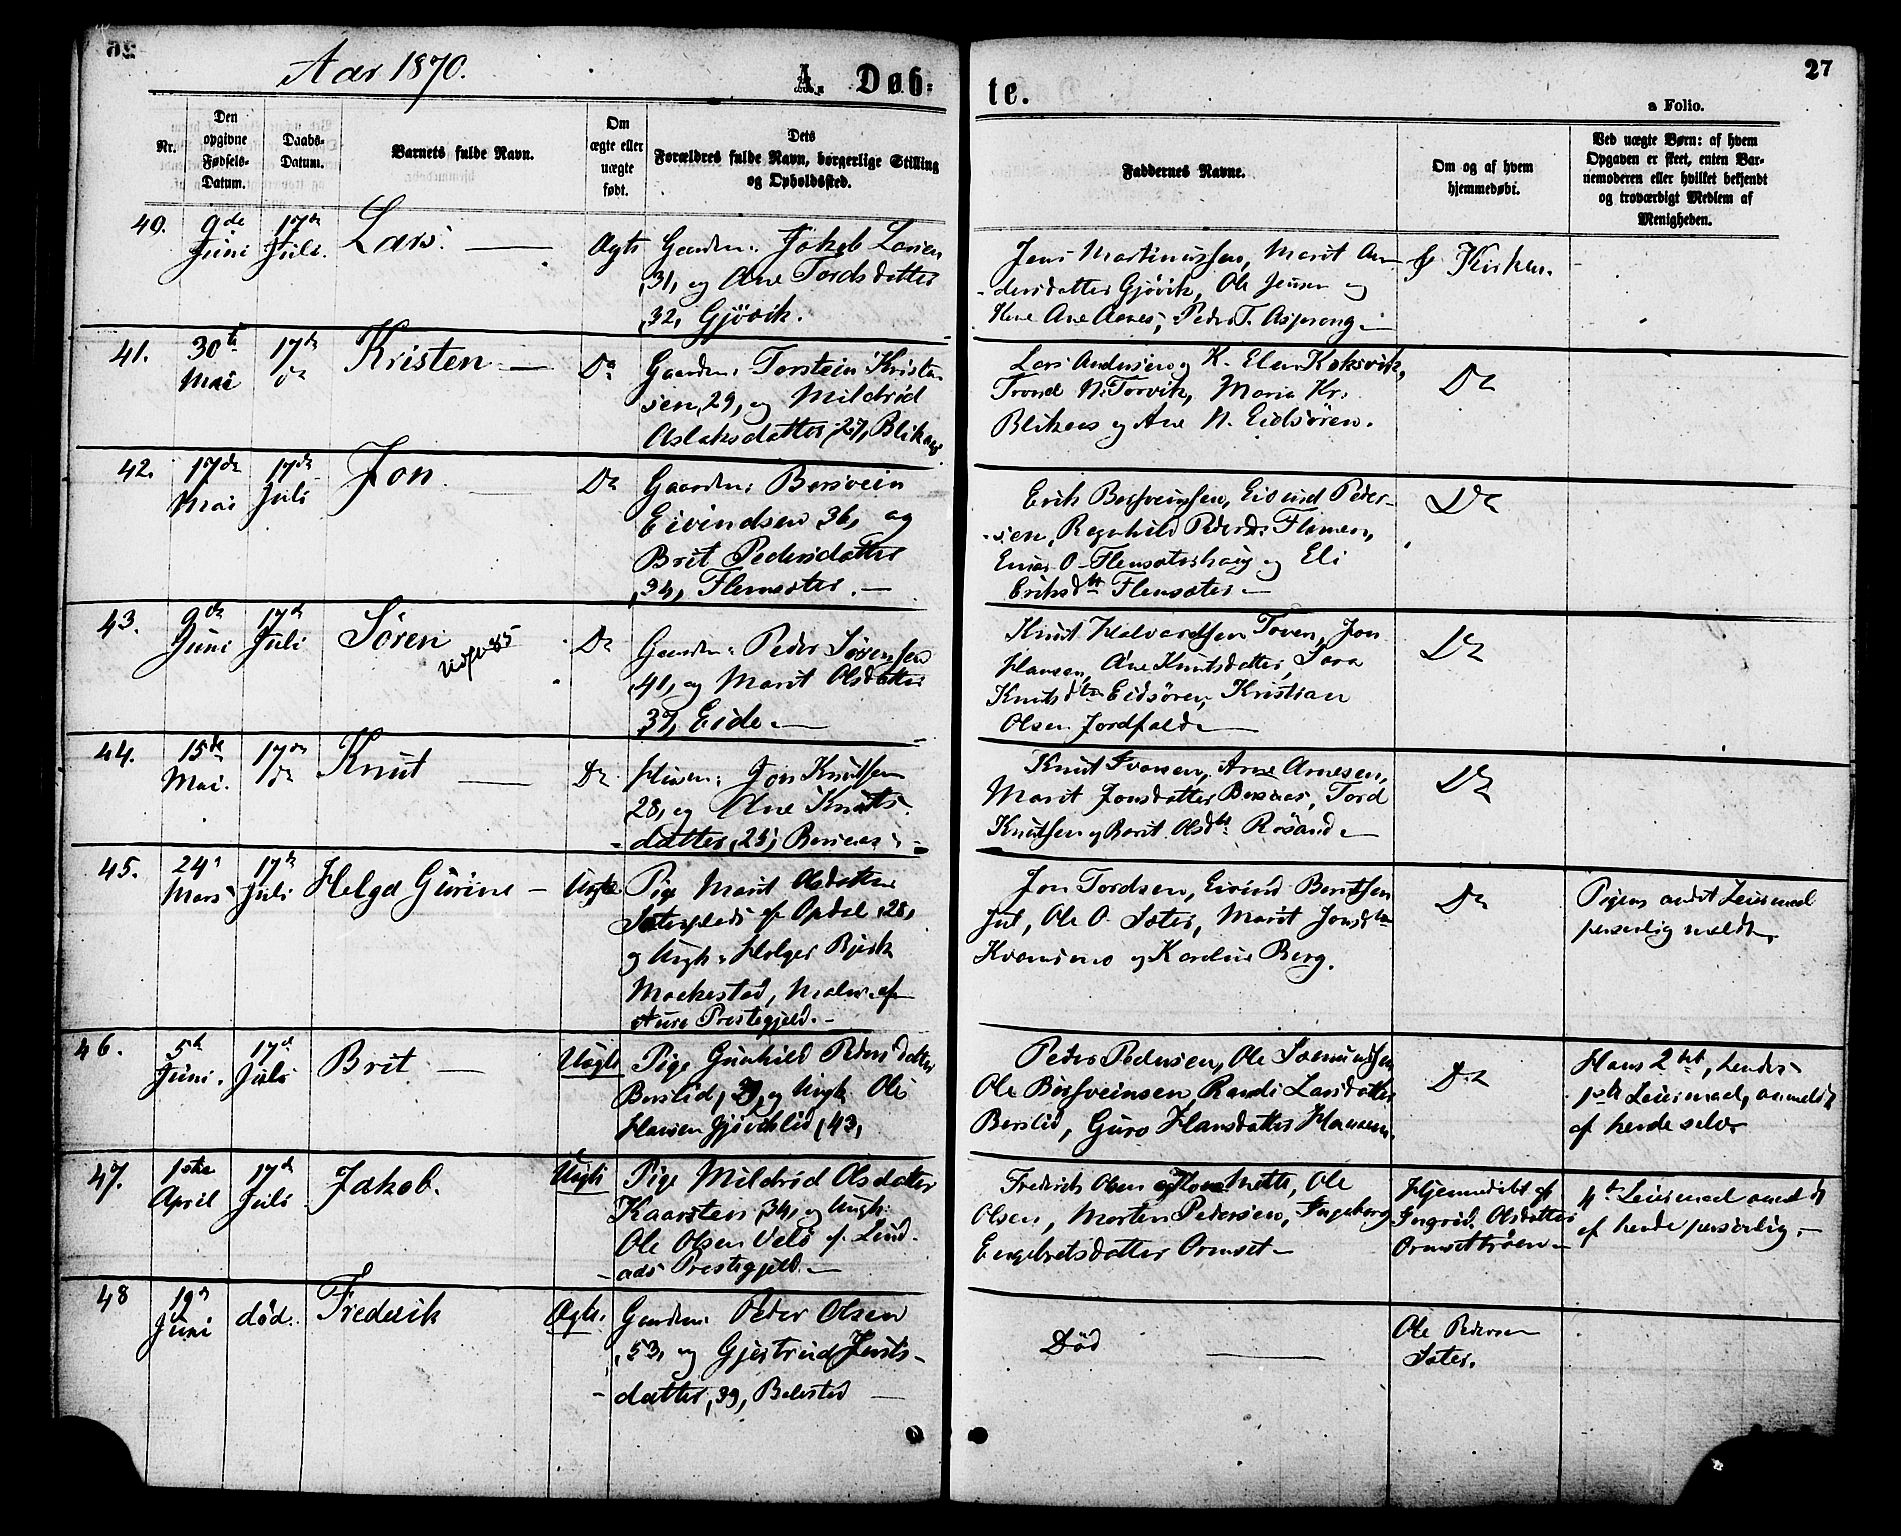 Aar 1870.
A. Døb-
te.
27
a Folio.
Nr.
Den
opgivne
Fødsels-
Datum.
Daabs-
Datum.
Barnets fulde Navn.
Om
ægte eller
uægte
født.
Dets
Forældres fulde Navn, borgerlige Stilling
og Opholdssted.
Faddernes Navne.
Om og af hvem
hjemmedøbt.
Ved uægte Børn: af hvem
Opgaven er skeet, enten Bar-
nemoderen eller hvilket bekjendt
og troværdigt Medlem af
Menigheden.
40.
9de
Juni
17de
Juli.
Lars. —
Ægte
Gaardm: Jakob Larsen
,31, og Ane Tordsdatter
,32, Gjövik.
Jens Martinussen, Marit An-
dersdatter Gjövik, Ole Jensen og
Kone Ane Aanes, Peder T. Aspvong.
Kirken.
41.
30te
Mai
17de
Kristen —
Do
Gaardm: Torstein Kristen
sen, 29, og Mildrid
Aslaksdatter, 27, Blikaas
Lars Andersen og K. Elen Koksvik,
Trond N. Torvik, Maria Kr.
Blikaas og Ane N. Eidsören.
Do
42.
17de
Mai
17de
Juli
Jon.
Do
Gaardm: Bersvein
Eivindsen 36, og
Brit Pedersdatter
,34, Flemsæter. —
Erik Bersveinsen, Eivind Peder-
sen, Ragnhild Pedersd: Flemsæ,
Einar O. Flemsæterhaug og Eli
Eriksdtr Flemsæter —
Do
43.
9de
Juni
17de
Juli
Sören
Do
Gaardm: Peder Sörensen
,40, og Marit Olsdatter
37, Eide. —
Knut Halvardsen Torven, Jon
Hansen, Ane Knutsdatter, Sara
Knutsdtr Eidsören, Kristian
Olsen Jordfald —
Do
44.
15de
Mai.
17de
Knut —
Do
Husm: Jon Knutsen
28, og Ane Knuts-
datter, 25, Bersaas
Knut Ivarsen, Arne Arnesen,
Marit Jonsdatter Bersaas, Tord
Knutsen og Berit Olsdtr Rösand —
Do
45.
24de
Mars
17de
Juli
Helga Gurine —
Uægte
Pige Marit Olsdatter
Sæterplads af Opdal ,28,
og Ungk: Holger Bjerk
Mackestad, Maler af
Aure Prestegjeld. —
Jon Tordsen, Eivind Berntsen
Jul, Ole O. Sæter, Marit Jonsdtr
Kvernmo og Karoline Berg.
Do
Pigens andet Leiermaal
personlig meldt.
46.
5te
Juni.
17de
Juli
Brit —
Uægte
Pige Gunhild Pedersdatter
Berslid, og Ungk Ole
Hansen Gjöviklid, 43,
Peder Pedersen, Ole Sæmundsen
Ole Bersveinsen, Randi Larsdatter
Berslid, Guro Hansdatter Hansen.
Do
Hans 2det, hendes
1ste Leiermaal, anmeldt
af hende selv
47.
1ste
April
17de
Juli
Jakob.
Uægte
Pige Mildrid Olsdatter
Kaarsten, 34, og Ungk:
Ole Olsen Velö af Lind-
aas Prestegjeld. —
Frederik Olsen og Kone Mette, Ole
Olsen, Morten Pedersen, Ingeborg
Engebretsdatter Ormset —
Hjemmedöbt af
Ingrid Olsdatter
Ormsettröen —
4de Leiermaal anmeldt
af hende personlig. —
48
19de
Juni
död.
Frederik
Ægte.
Gaardm: Peder Olsen
,53, og Gjertrud Jens-
datter, 39, Bölestad —
Död —
Ole Pedersen
Sæter.